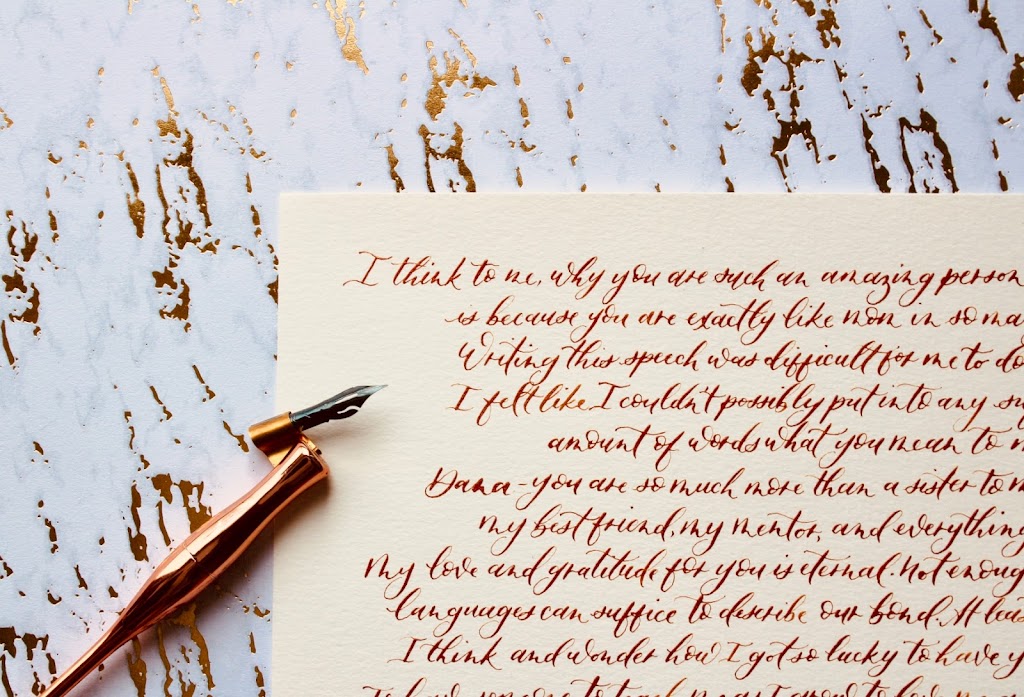 I think to me, why you are such an amazing person
is because you are exactly like mom in so ma
Writing this speech was difficult for me to do
I felt like I couldn't possibly put into any su
amount of words what you mean to m
Dana - you are so much more than a sister to m
my best friend, my mentor, and everything
My love and gratitude for you is eternal. Not enoug
languages can suffice to describe our bond. At leas
I think and wonder how I got so lucky to have y
someone to